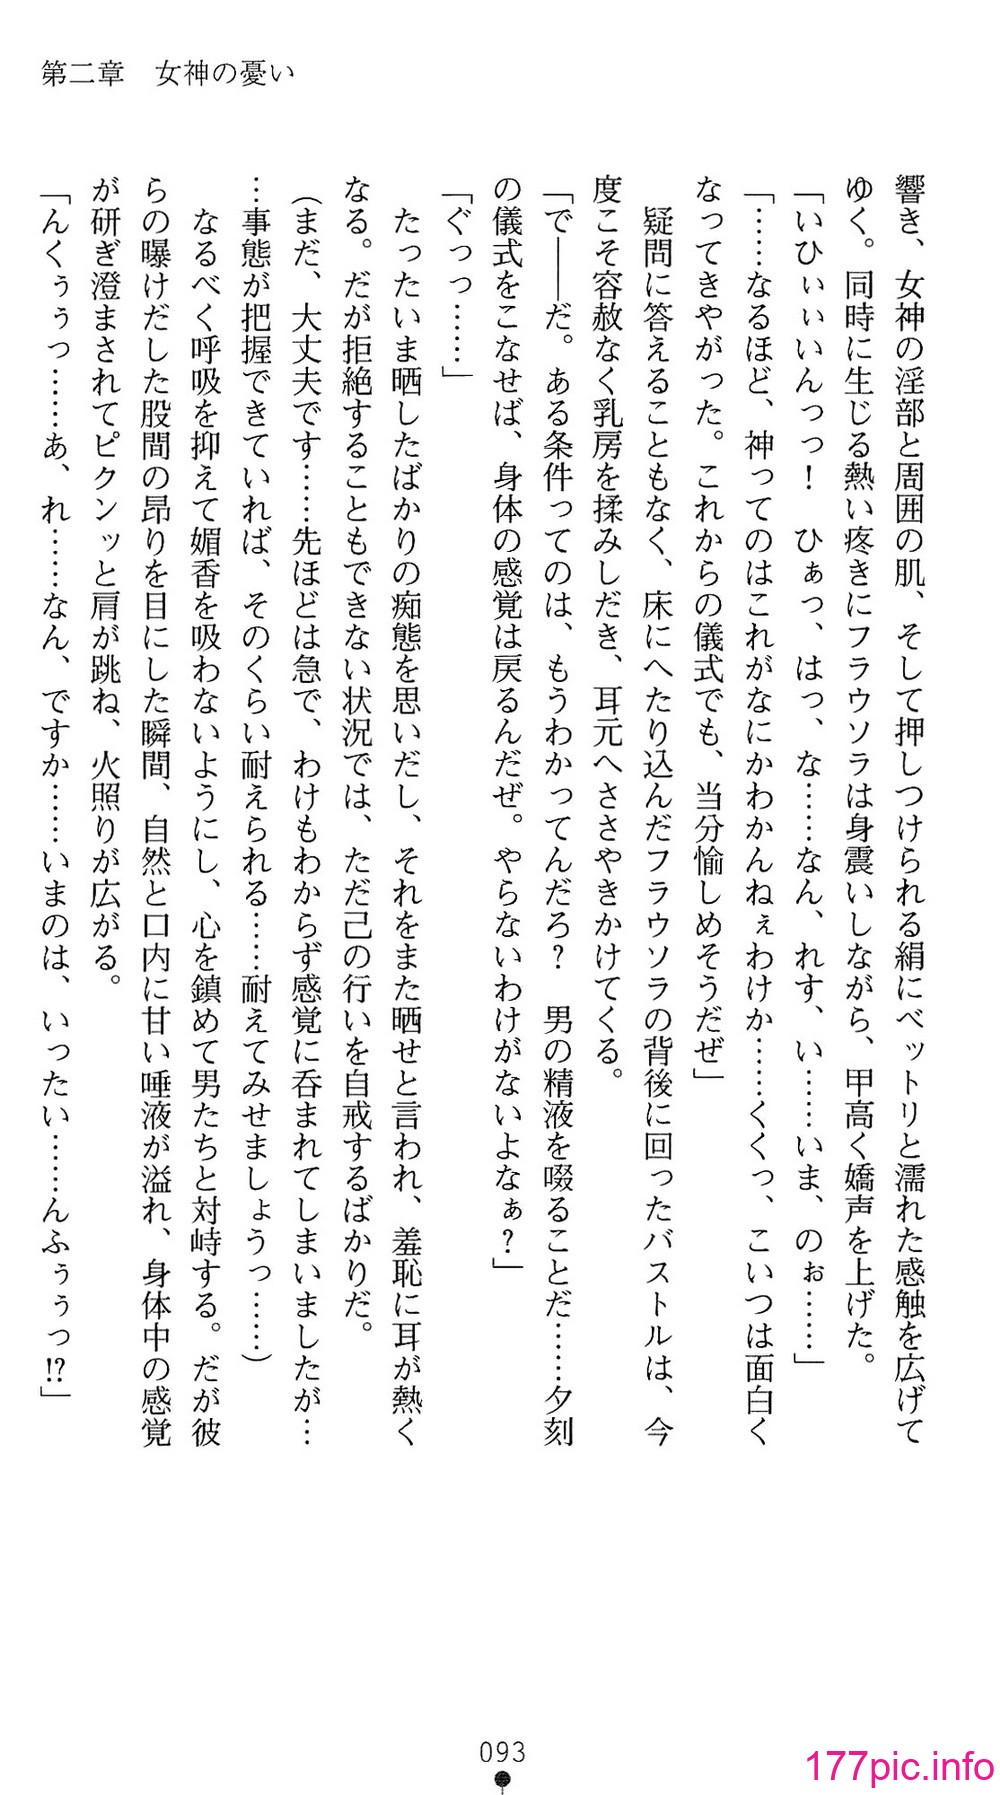 第二章　女神の憂い
響き、女神の淫部と周囲の肌、そして押しつけられる絹にベットリと濡れた感触を広げて
ゆく。同時に生じる熱い疼きにフラウソラは身震いしながら、甲高く嬌声を上げた。
「いひぃぃいんっっ！　ひぁっ、はっ、な……なん、れす、い……いま、のぉ……」
「……なるほど、神ってのはこれがなにかわかんねぇわけか……くくっ、こいつは面白く
なってきやがった。これからの儀式でも、当分愉しめそうだぜ」
　疑問に答えることもなく、床にへたり込んだフラウソラの背後に回ったバストルは、今
度こそ容赦なく乳房を揉みしだき、耳元へささやきかけてくる。
「で――だ。ある条件ってのは、もうわかってんだろ？　男の精液を啜ることだ……夕刻
の儀式をこなせば、身体の感覚は戻るんだぜ。やらないわけがないよなぁ？」
「ぐっっ……」
　たったいま晒したばかりの痴態を思いだし、それをまた晒せと言われ、羞恥に耳が熱く
なる。だが拒絶することもできない状況では、ただ己の行いを自戒するばかりだ。
（まだ、大丈夫です……先ほどは急で、わけもわからず感覚に呑まれてしまいましたが…
…事態が把握できていれば、そのくらい耐えられる……耐えてみせましょうっ……）
　なるべく呼吸を抑えて媚香を吸わないようにし、心を鎮めて男たちと対峙する。だが彼
らの曝けだした股間の昂りを目にした瞬間、自然と口内に甘い唾液が溢れ、身体中の感覚
が研ぎ澄まされてピクンッと肩が跳ね、火照りが広がる。
「んくぅぅっ……あ、れ……なん、ですか……いまのは、いったい……んふぅぅっ!?」
093
177pic.info